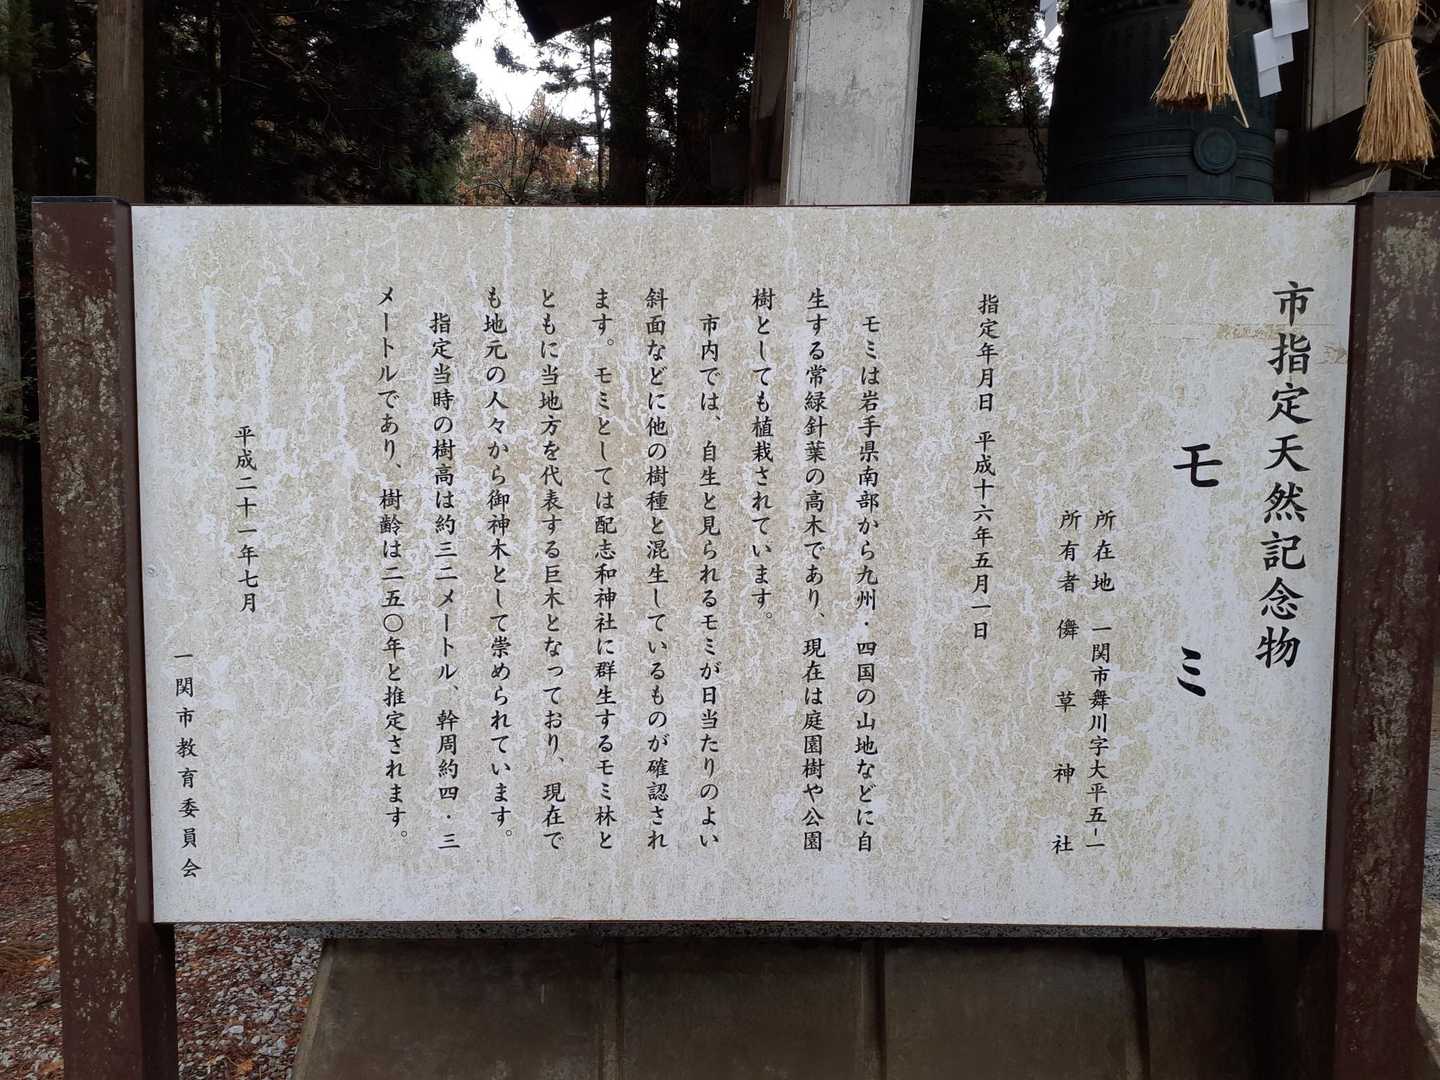 市指定天然記念物
モミ
所在地 一関市舞川字大平五-一
所有者 儛草神社
指定年月日 平成十六年五月一日
モミは岩手県南部から九州・四国の山地などに自
生する常緑針葉の高木であり、現在は庭園樹や公園
樹としても植栽されています。
市内では、自生と見られるモミが日当たりのよい
斜面などに他の樹種と混生しているものが確認され
ます。モミとしては配志和神社に群生するモミ林と
ともに当地方を代表する巨木となっており、現在で
も地元の人々から御神木として崇められています。
指定当時の樹高は約三二メートル、幹周約四・三
メートルであり、樹齢は二五〇年と推定されます。
平成二十一年七月
一関市教育委員会